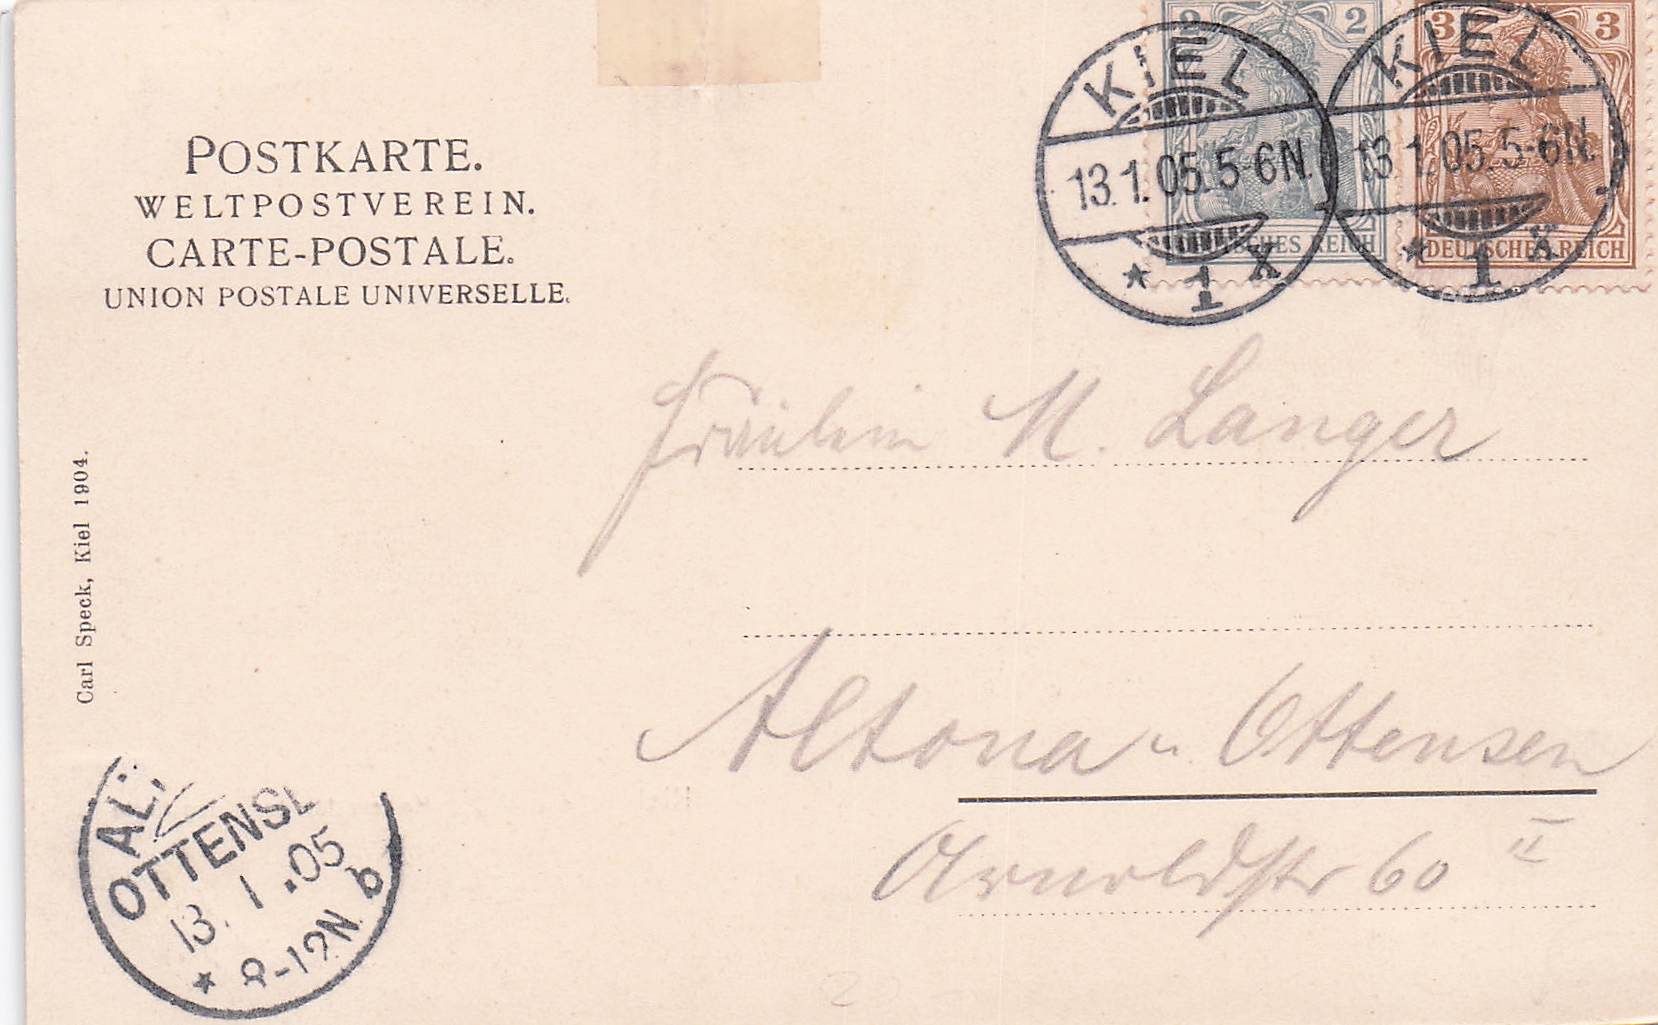 POSTKARTE.
WELTPOSTVEREIN.
CARTE-POSTALE.
UNION POSTALE UNIVERSELLE.
2 2
DEUTSCHES REICH
3 3
DEUTSCHES REICH
KIEL
13.1.05.5-6N.
* 1 X
KIEL
13.1.05.5-6N.
* 1 X
Fräulein M. Langer
Altona u. Ottensen
Arnoldstr 60 II
Carl Speck, Kiel 1904.
OTTENSE
13. 1 .05
* 8-12N. b